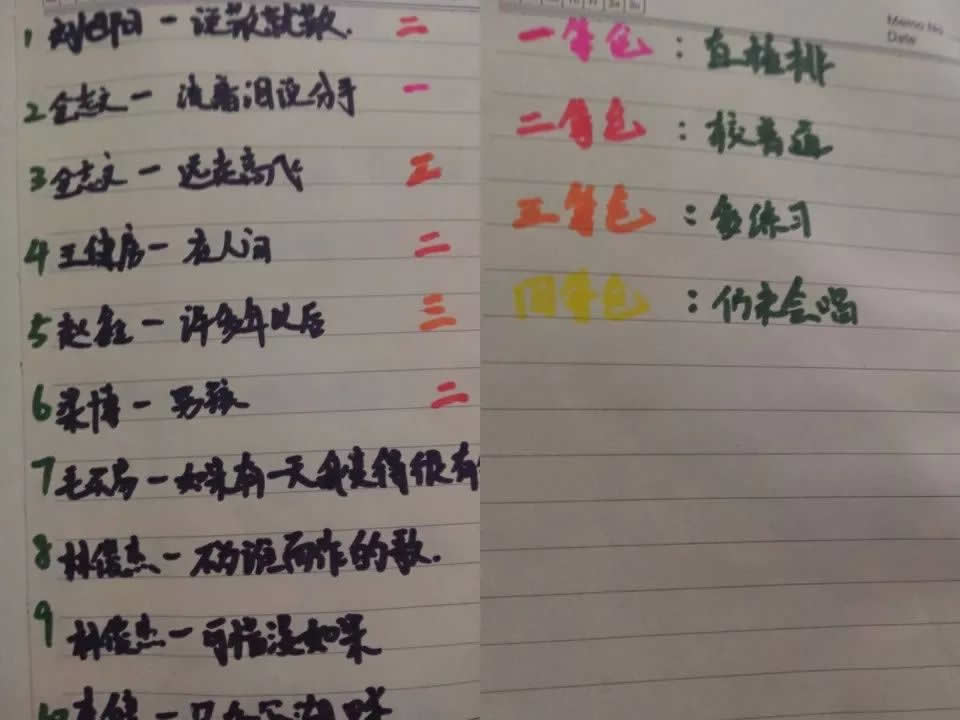 1 刘阳阳一说散就散. 二
2 全志文一流着泪说分手 一
3 全志文一远走高飞 三
4 王健房一在人间 二
5 赵鑫一许多年以后 三
6 梁博一男孩 二
7 毛不易一如果有一天我变得很有
8 林俊杰一不为谁而作的歌.
9 林俊杰一可惜没如果
Memo No
Date
一等色：直接排
二等色：核着逼
三等色：多练习
四等色：仍未会唱